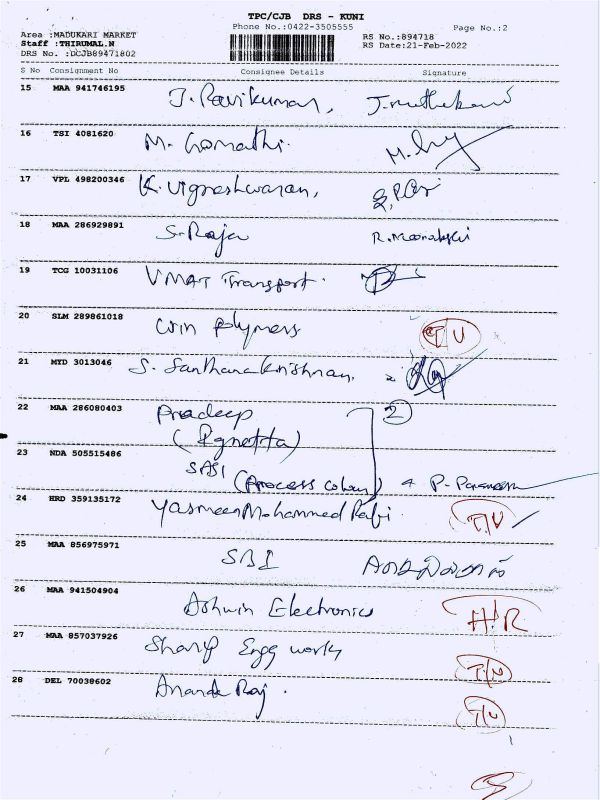 TPC/CJB DRS - KUNI
Phone No.:0422-3505555
Page No.:2
Area :MADUKARI MARKET
Staff :THIRUMAL.N
DRS No. :DCJB89471802
RS No.:894718
RS Date:21-Feb-2022
S No Consignment No Consignee Details Signature
15 MAA 941746195 J. Ravikumar,
16 TSI 4081620 M. Gomathi.
17 VPL 498200346 K. Vigneshwaran,
18 MAA 286929891 S. Raja R. Meenakshi
19 TCG 10031106 VMAT Transport.
20 SLM 289861018 Win Polymers T/U
21 MYD 3013046 S. Santhana Krishnan,
22 MAA 286080403 Pradeep 2
23 NDA 505515486 SASI (Process Colour)
24 HRD 359135172 Yasmeen Mohammed Rafi. T/U
25 MAA 856975971 SBI
26 MAA 941504904 Ashwin Electronics H/R
27 MAA 857037926 Sharp Engg works T/U
28 DEL 70038602 Ananda Raj. T/U